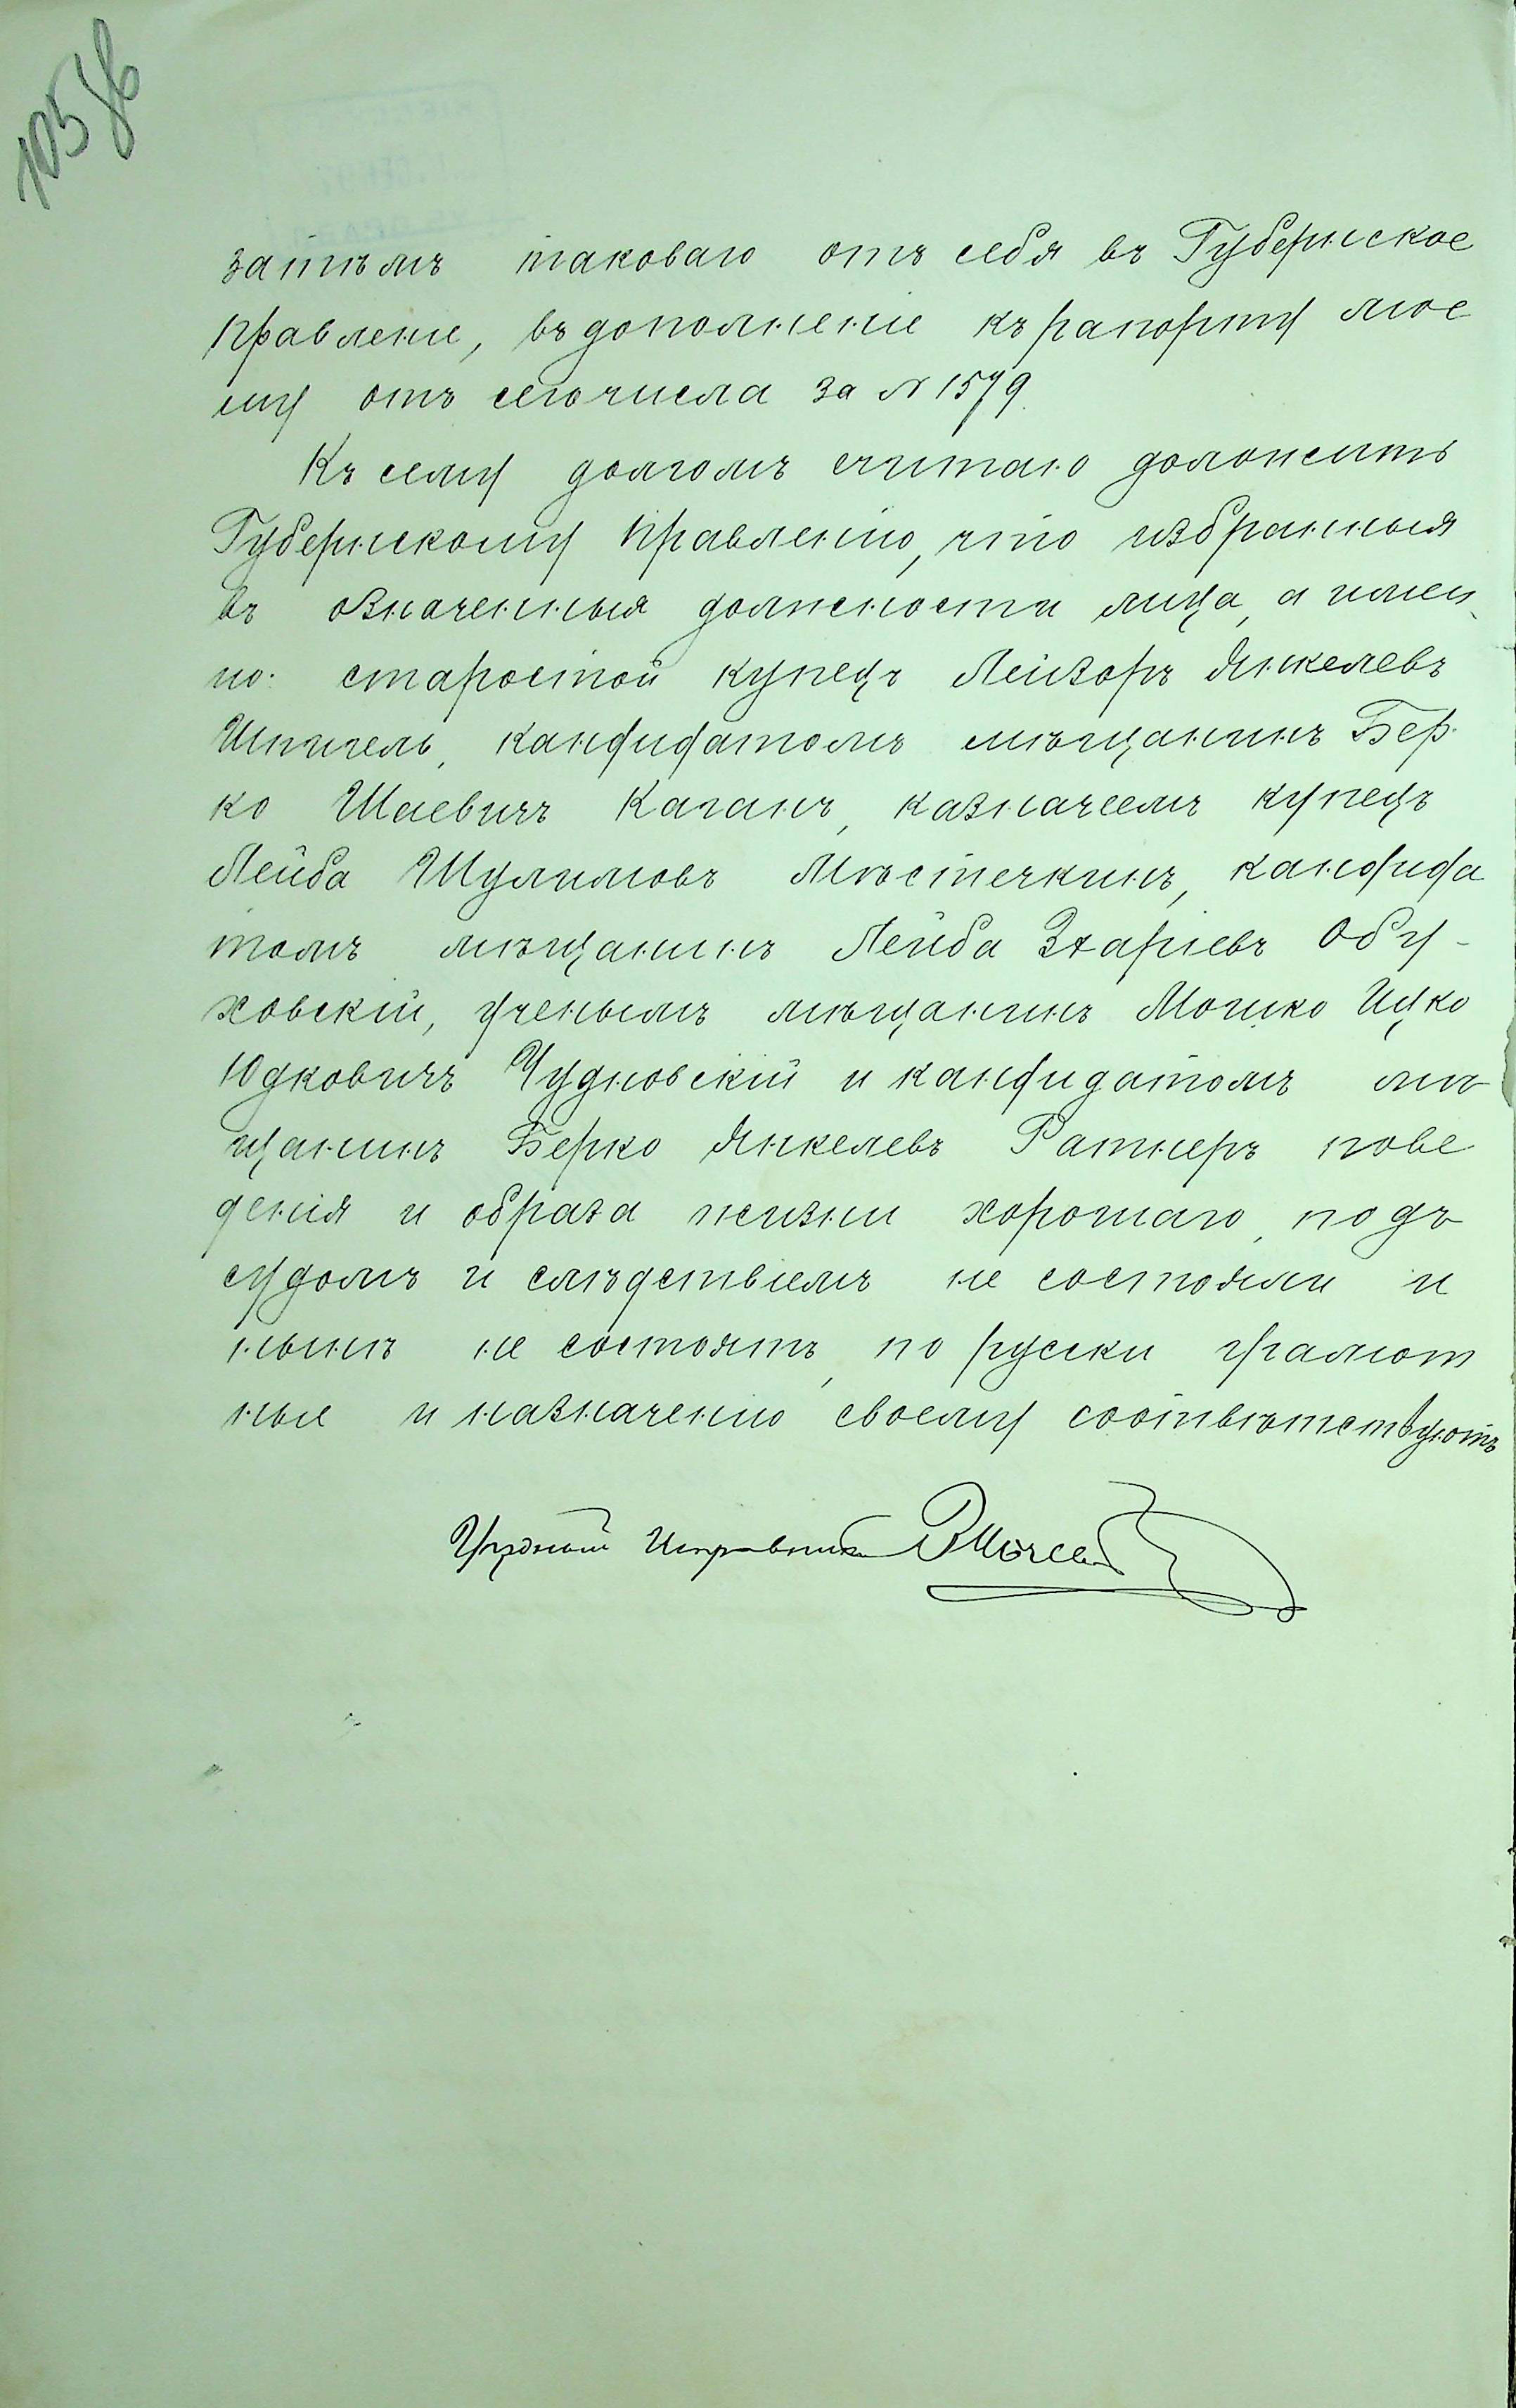 затѣмъ таковаго отъ себя въ Губернское
Правленіе, въ дополненіе къ рапорту мое
му отъ сего числа за № 1579.
Къ сему долгомъ считаю доложить
Губернскому Правленію, что избранныя
въ означенныя должности лица, а имен
но: старостой купецъ Лейзоръ Янкелевъ
Шпигель, кандидатомъ мѣщанинъ Бер-
ко Шаевичъ Каганъ, казначеемъ купецъ
Лейба Шулимовъ Мѣстечкинъ, кандида
томъ мѣщанинъ Лейба Захаріевъ Обу-
ховскій, ученымъ мѣщанинъ Мошко Ицко
Юдковичъ Чудновскій и кандидатомъ мѣ
щанинъ Берко Янкелевъ Ратнеръ пове
денія и образа жизни хорошаго, подъ
судомъ и слѣдствіемъ не состояли и
нынѣ не состоятъ, по русски грамот
ные и назначенію своему соотвѣтствуютъ
Уѣздный Исправникъ